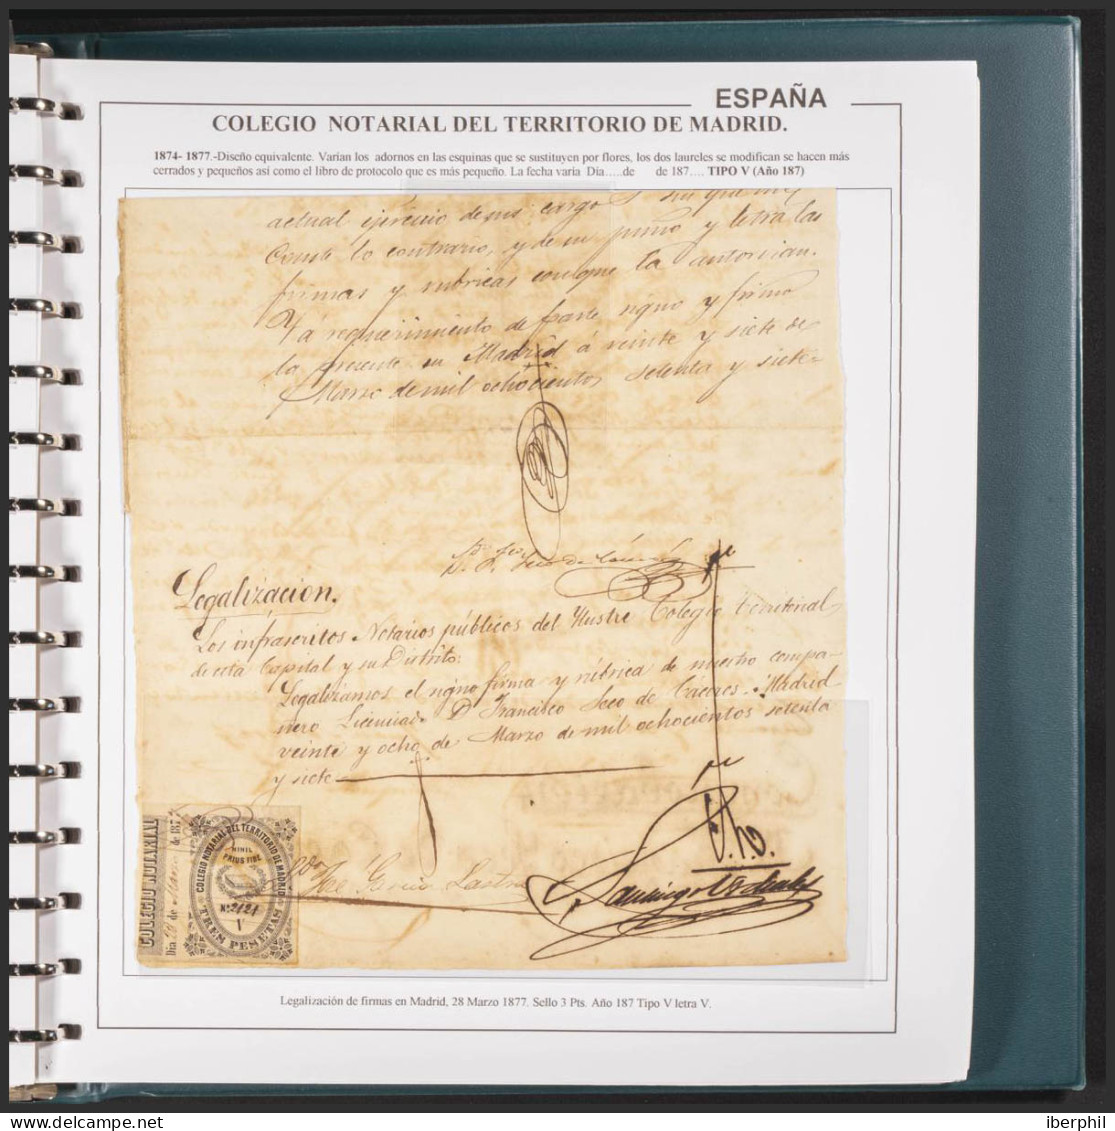 ESPAÑA
COLEGIO NOTARIAL DEL TERRITORIO DE MADRID.
1874- 1877.-Diseño equivalente. Varían los adornos en las esquinas que se sustituyen por flores, los dos laureles se modifican se hacen más
cerrados y pequeños así como el libro de protocolo que es más pequeño. La fecha varía Día…..de de 187…. TIPO V (Año 187)
actual ejercicio de su cargo sin que me
conste lo contrario, y de su puño y letra las
firmas y rubricas con que la autorizan.
Y á requerimiento de parte signo y firmo
la presente en Madrid á veinte y siete de
Marzo de mil ochocientos setenta y siete
Legalizacion.
Los infrascritos Notarios públicos del Ilustre Colegio Territorial
de esta Capital y su Distrito:
Legalizamos el signo firma y rúbrica de nuestro compa-
ñero Licenciado D. Francisco Seco de Cáceres. Madrid
veinte y ocho de Marzo de mil ochocientos setenta
y siete
COLEGIO NOTARIAL
Día 28 de Marzo de 1877
COLEGIO NOTARIAL DEL TERRITORIO DE MADRID
NIHIL
PRIUS FIDE
Nº 2121
V
TRES PESETAS
José García Lastra
Legalización de firmas en Madrid, 28 Marzo 1877. Sello 3 Pts. Año 187 Tipo V letra V.
iberphil